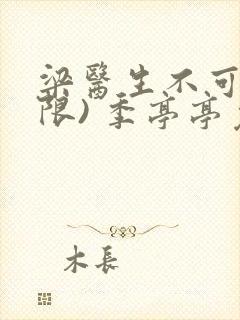 梁醫生不可
限）季亭亭
木長